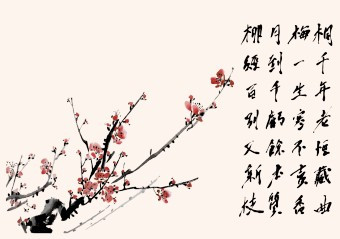 桐千年老恒藏曲
梅一生寒不賣香
月到千虧餘本質
柳經百別又新枝